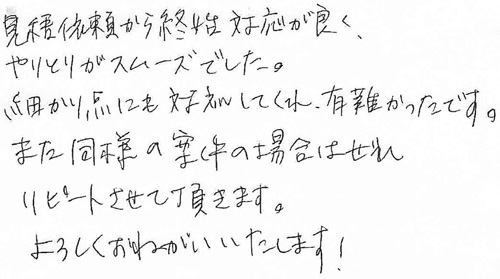 見積依頼から終始対応が良く、
やりとりがスムーズでした。
細かい点にも対応してくれ、有難かったです。
また同様の案件の場合はぜひ
リピートさせて頂きます。
よろしくおねがいいたします！